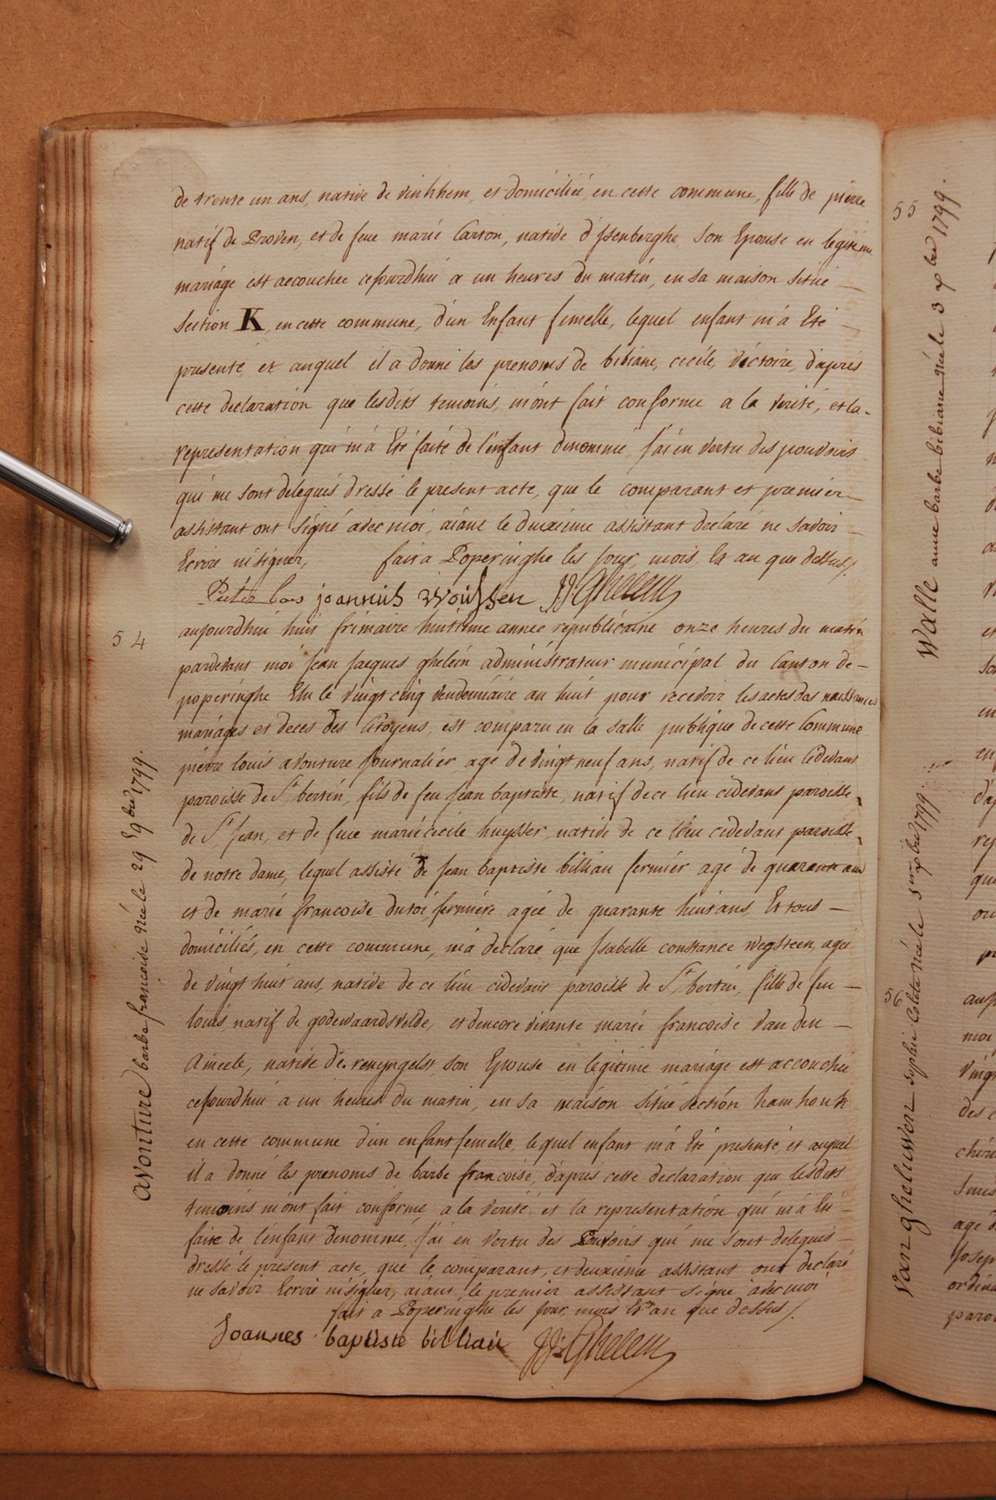 de trente un ans, native de vinkhem, et domiciliée, en cette commune, fille de pierre
natif de Proven, et de feue marie Carron, native d'ysenberghe, son Epouse en legitime
mariage est accouchée cejourdhui a un heures du matin, en sa maison situé
section K, en cette commune, d'un Enfant femelle, lequel enfant m'a Eté
presenté, et auquel il a donné les prenoms de bibiane, cecile, victoire, d'apres
cette declaration que lesdits temoins, m'ont fait conforme a la verité, et la
representation qui m'a Eté faite de l'enfant denommé, j'ai en vertu des pouvoirs
qui me sont delegués dressé le present acte, que le comparant et premier
assistant ont signé avec moi, aiant le deuxieme assistant declaré ne savoir
Ecrire ni signer, fait a Poperinghe les jour, mois, et an que dessus /.
joannis JJ Ghelein
54
aujourdhui huit frimaire huitieme année républicaine onze heures du matin
pardevant moi Jean Jacques ghelein administrateur municipal du Canton de
poperinghe Elu le vingt cinq vendemiaire an huit pour recevoir les actes des naissances
mariages et deces des Citoyens, est comparu en la salle publique de cette Commune
pierre louis avonture journalier, agé de vingt neuf ans, natif de ce lieu cidevant
paroisse de St bertin, fils de feu Jean baptiste, natif de ce lieu cidevant paroisse
de St Jean, et de feue marie cecile huysser, native de ce lieu cidevant paroisse
de notre dame, lequel assisté de Jean baptiste billiau fermier agé de quarante ans
et de marie francoise dutoi, fermiere agée de quarante huit ans, Et tous
domiciliés, en cette commune, m'a declaré que Isabelle constance wegsteen, agée
de vingt huit ans, native de ce lieu cidevant paroisse de St bertin, fille de feu
louis natif de godewaardsvelde, et d'encore vivante marie francoise van den
Ameele, native de renyngelst son Epouse en legitime mariage est accouchée
cejourdhui a un heures du matin, en sa maison situé section hamhouk
en cette commune d'un enfant femelle, lequel enfant m'a Eté presenté, et auquel
il a donné les prenoms de barbe francoise, d'apres cette declaration que lesdits
temoins m'ont fait conforme, a la verité et la representation qui m'a Eté
faite de l'enfant denommé, j'ai en vertu des Pouvoirs qui me sont delegués
dressé le present acte, que le comparant, et deuxieme assistant ont declaré
ne savoir Ecrire ni signer, aiant, le premier assistant signé avec moi
fait a Poperinghe les jour, mois et an que dessus /.
Joannes baptiste billiau JJ Ghelein
avonture barbe françoise née le 29 9bre 1799.
55
Walle anne barbe bibiane née le 3 xbre 1799.
56
Van ghelüwen sophie née le 5 xbre 1799